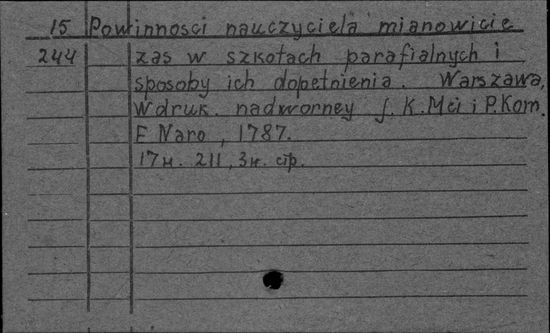 15 Powinnosci nauczyciela mianowicie
244 zas w szkołach parafialnych i
sposoby ich dopełnienia. Warszawa,
W druk. nadworney J. K. Mci i P. Kom.
E Naro, 1787.
17 н. 211, 3 н. стр.